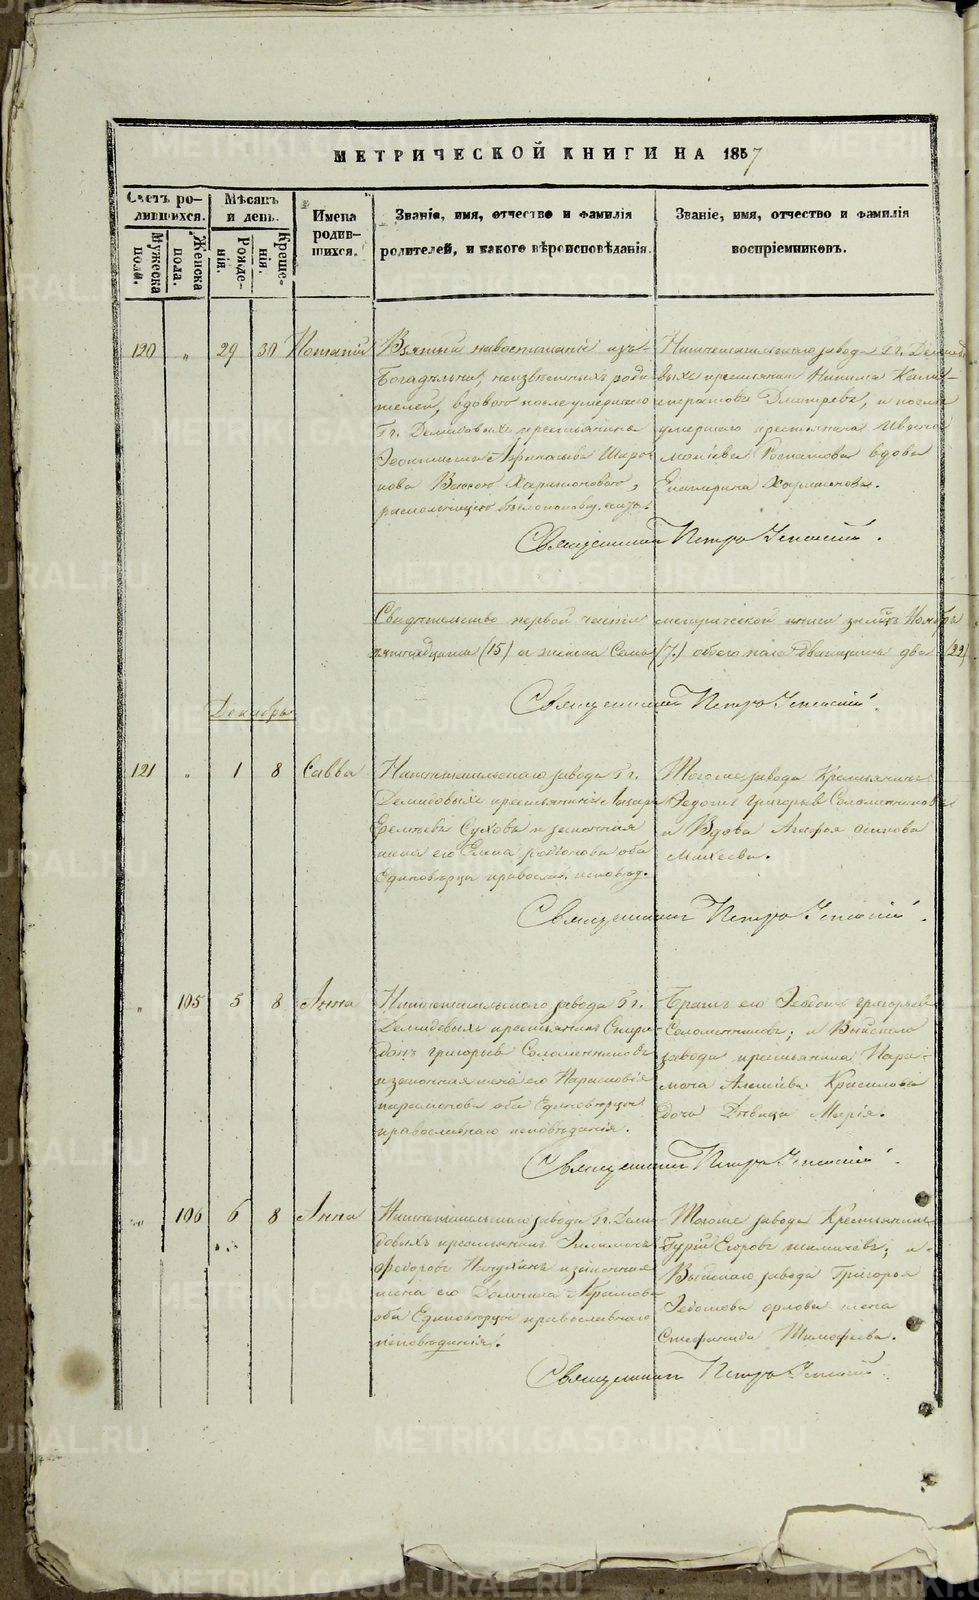 МЕТРИЧЕСКОЙ КНИГИ НА 1857
Счетъ ро-
дившихся.
Мужеска
пола.
Женска
пола.
Мѣсяцъ
и день.
Рожде-
нія.
Креще-
нія.
Имена
родив-
шихся.
Званіе, имя, отчество и фамилія
родителей, и какого вѣроисповѣданія.
Званіе, имя, отчество и фамилія
воспріемниковъ.
120 " 29 30 Потапій
Взятый на воспитаніе изъ
Богадѣльни, неизвѣстныхъ роди
телей, вдовою послеумершаго
Гг. Демидовыхъ крестьянина
Афанасьева Широ
кова Харитоновою,
Нижнетагильскаго завода Гг. Демидо
выхъ крестьянинъ Никита Кали-
стратовъ Дмитревъ, и после
умершаго крестьянина Ивана
вдова
Екатерина
Священникъ Петръ
Свидѣтельство первой части метрической книги Ноябрь
пятнадцать (15) а женска Семь (7.) обоего пола Двадцать два (22)
Священникъ Петръ
Декабрь
121 " 1 8 Савва
Нижнетагильскаго завода Гг.
Демидовыхъ крестьянинъ Лазарь
Суховъ и законная
жена его Елена родіонова оба
Единовѣрца православ. исповѣд.
Тогоже завода Крестьянинъ
Федотъ Григорьев Соломенниковъ
и Вдова Агафья осипова
Михеева.
Священникъ Петръ
" 105 5 8 Анна
Нижнетагильскаго завода Гг.
Демидовыхъ крестьянинъ Спири-
донъ григорьев Соломенниковъ
и законная жена его Парасковія
парамонова оба Единовѣрцы
православнаго исповѣданія.
Братъ его Федотъ григорьев
Соломенниковъ; и Выйскаго
завода крестьянина Пара-
мона Алексѣева Красилова
дочь Дѣвица Марія.
Священникъ Петръ
" 106 6 8 Анна
Нижнетагильскаго завода Гг. Деми-
довыхъ крестьянинъ Филимонъ
Федоровъ и законная
жена его Абрамова
оба Единовѣрцы православнаго
исповѣданія.
Тогоже завода Крестьянинъ
Гурій Егоровъ и
Выйскаго завода Григорья
Федотова орлова жена
Стефанида Тимофеева.
Священникъ Петръ
METRIKI.GASO-URAL.RU